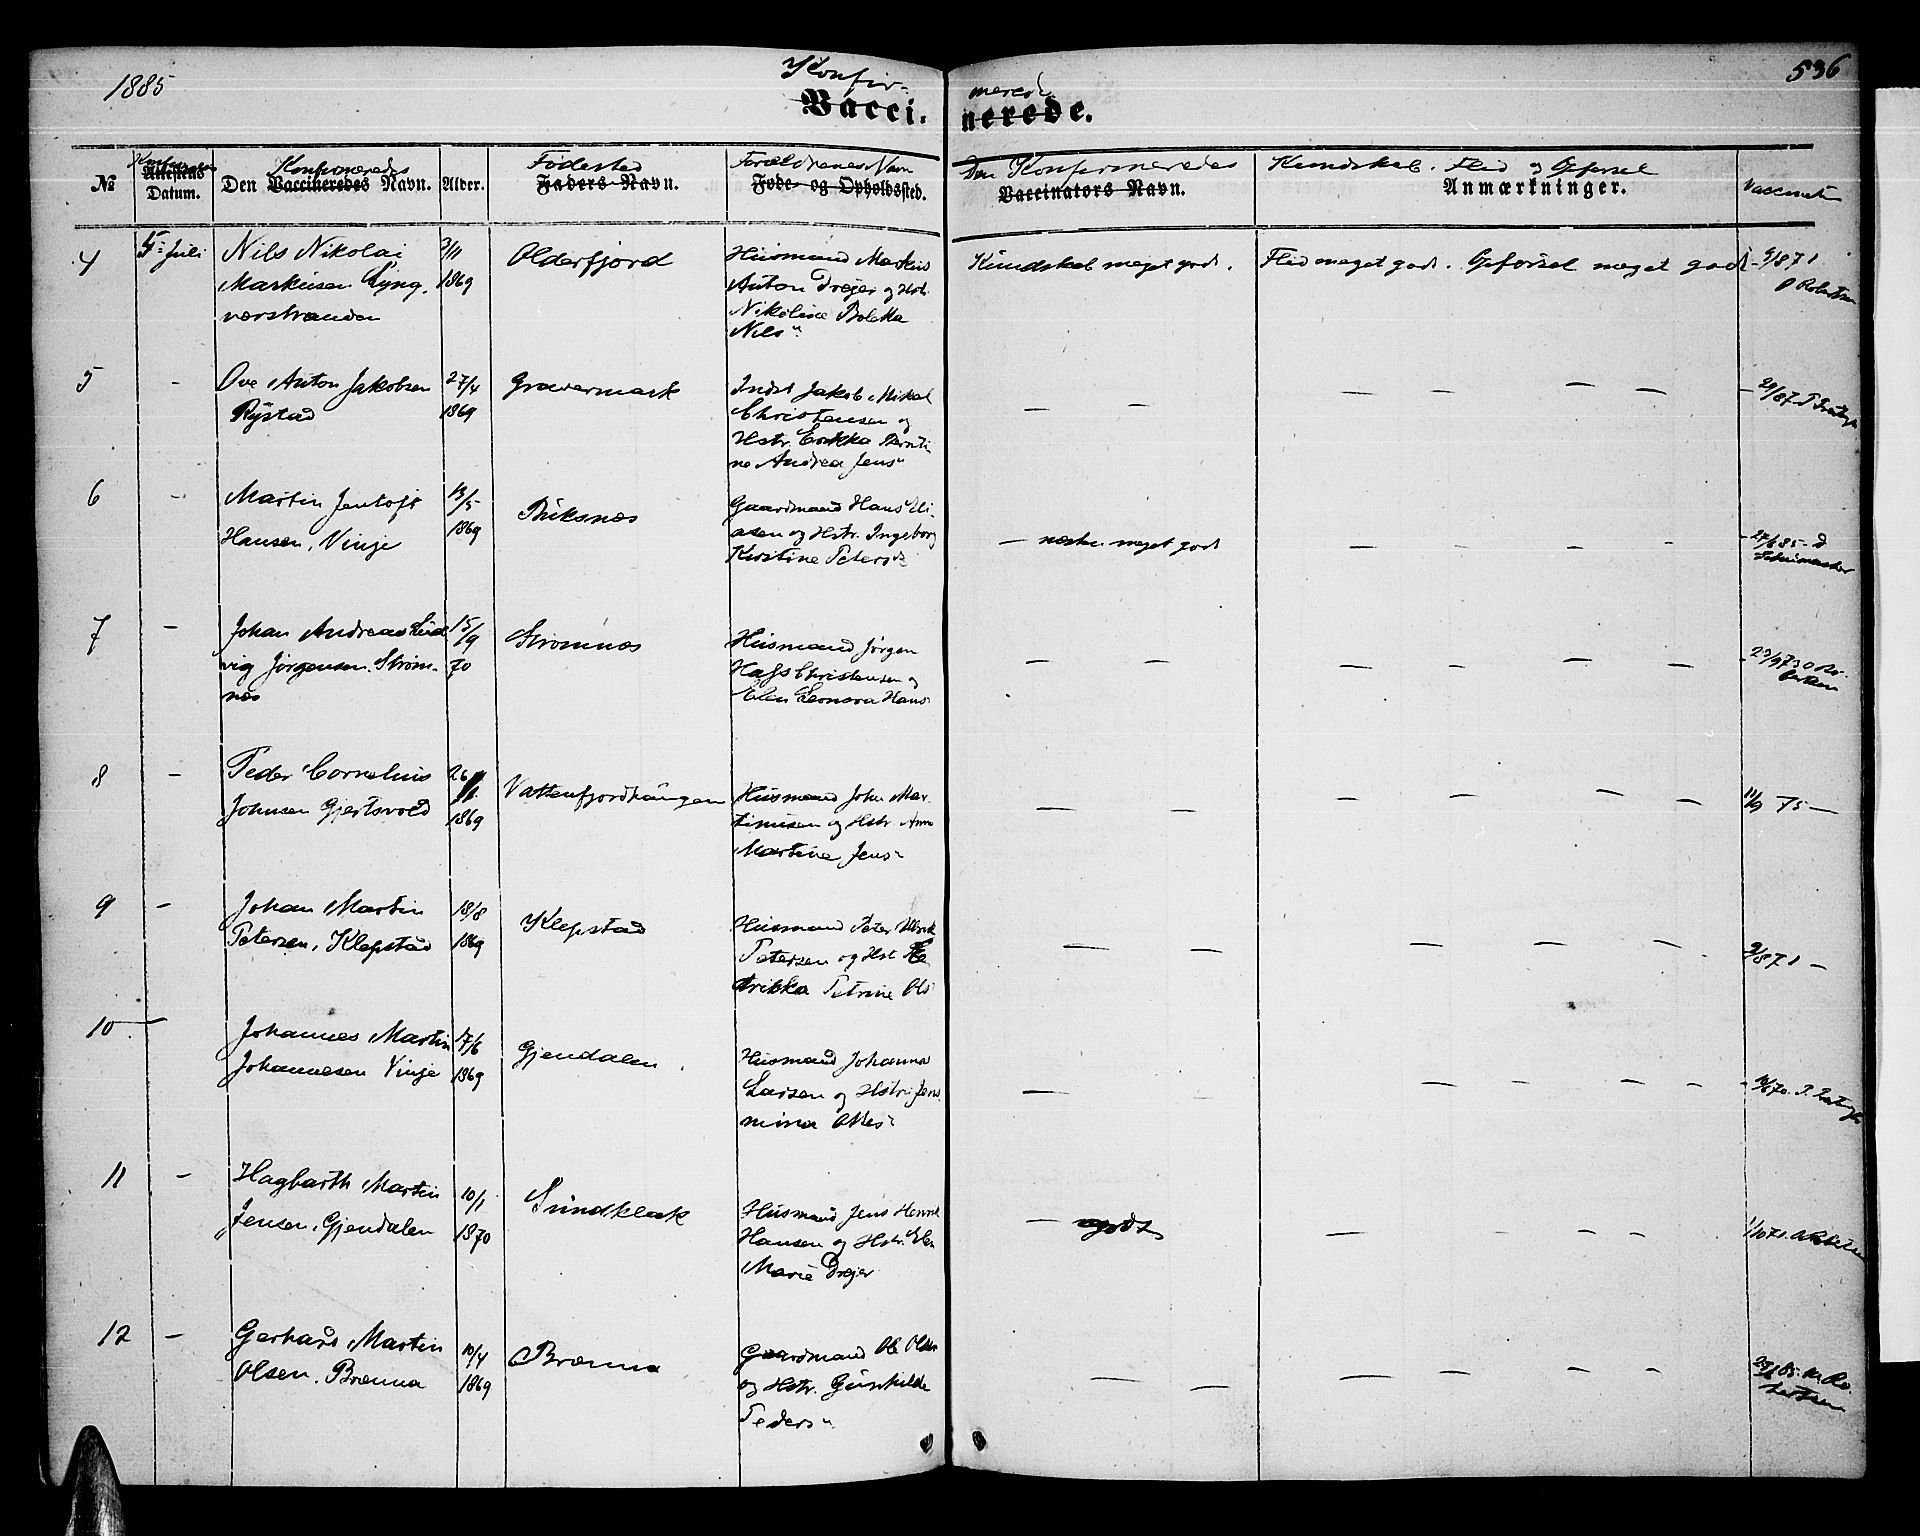 1885
Konfir- merede
536
Vacci. nerede.
№
Attestens Datum.
Konfirmeredes
Den Vaccineredes Navn.
Alder.
Fødested
Faders Navn.
Forældrenes Navn
Føde- og Opholdssted.
Den Konfirmeredes
Vaccinators Navn.
Kundskab. Flid og Opførsel
Anmærkninger.
4
5te Juli
Nils Nikolai
Markusen Lyng-
værstranden
2/11
1869
Olderfjord
Husmand Markus
Anton Drejer og Hst.
Nikoline Boletta
Nils"
Kundskab meget godt. Flid meget god. Opførsel meget god
9/8 71
O Robertsen
5
-
Ove Anton Jakobsen
Rystad
27/4
1869
Gravermark
Inds Jakob Mikal
Christensen og
Hstr. Erikka Bernti-
ne Andrea Jens"
— — — — — —
6
-
Martin Jentoft
Hansen, Vinje
13/5
1869
Buksnæs
Gaardmand Hans Eli-
asen og Hstr. Ingeborg
Kirstine Peters"
— næsten meget godt — — — —
27/6 85 -
7
-
Johan Andreas Lud
vig Jørgensen, Strøm-
næs
15/9
70
Strømnæs
Husmand Jørgen
Hafs Christensen og
Elen Leonora Hans"
— — — — — —
29/9 73 O Ro-
bertsen
8
-
Peder Cornelius
Johnsen Gjertsvold
26
1869
Vattenfjordkungen
Husmand John Mar-
tinusen og Hstr. Anne
Martine Jens"
— — — — — —
11/9 75 —
9
-
Johan Martin
Petersen, Klepstad
18/8
1869
Klepstad
Husmand Peter Ulrik
Petersen og Hst.
drikka Petrine Ols"
— — — — — —
9/8 71 —
10
—
Johannes Martin
Johannesen Vinje
17/6
1869
Gjendalen
Husmand Johannes
Larsen og Hstr. Jens-
mina Ottes"
— — — — — —
11
-
Hagbarth Martin
Jensen, Gjendalen
10/1
1870
Sundklak
Husmand Jens Henrik
Hansen og Hstr. Elen
Marie Drejer
— godt — — — —
12
-
Gerhard Martin
Olsen, Brenna
10/4
1869
Brenna
Gaardmand Ole Olsen
og Hstr. Gunhilde
Peders"
— — — — — —